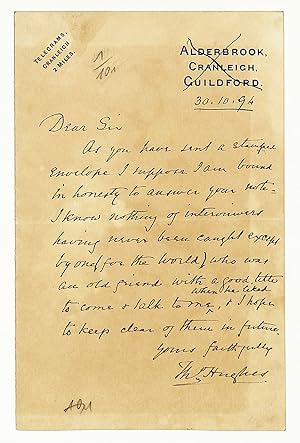 TELEGRAMS,
CRANLEIGH
2 MILES.
1/101
ALDERBROOK,
CRANLEIGH,
GUILDFORD.
30.10.94
Dear Sir
As you have sent a stamped
envelope I suppose I am bound
in honesty to answer your note.
I know nothing of interviewers
having never been caught except
by one (for the World) who was
an old friend with a good title
when he liked
to come & talk to me, & I hope
to keep clear of them in future
Yours faithfully
Thos Hughes